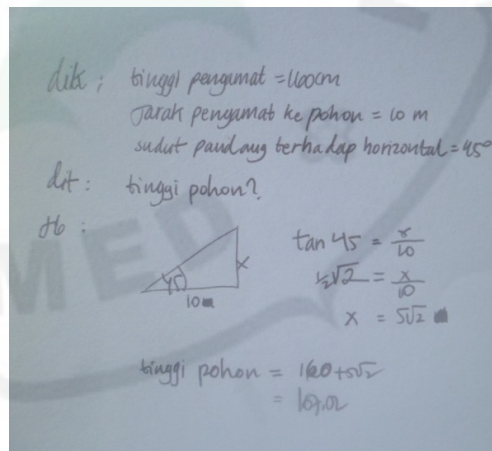 dik : tinggi pengamat = 160cm
Jarak pengamat ke pohon = 10 m
sudut pandang terhadap horizontal = 45°
dit : tinggi pohon?
Jb :
45
x
10m
tan 45 = x/10
½√2 = x/10
x = 5√2
tinggi pohon = 160+5√2
= 167,02
MED